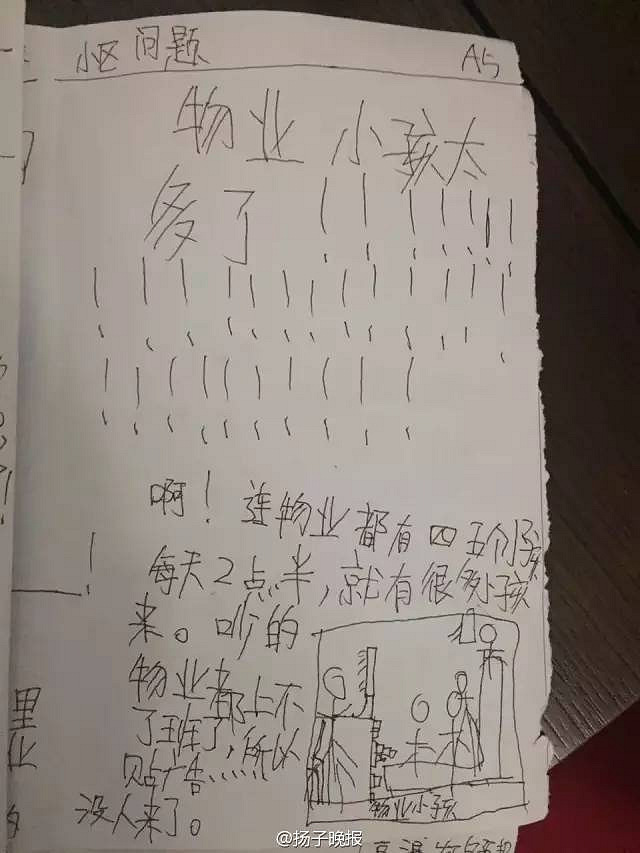 小区问题 A5
物业小孩太
多了！！！！！！！
！！！！！！！！！！！！
！！！！！！！！！！
啊！连物业都有四五个小孩
每天2点半，就有很多小孩
来。吵的
物业都上不
了班了，所以
贴广告......
没人来了。
物业小孩
里
业
@扬子晚报